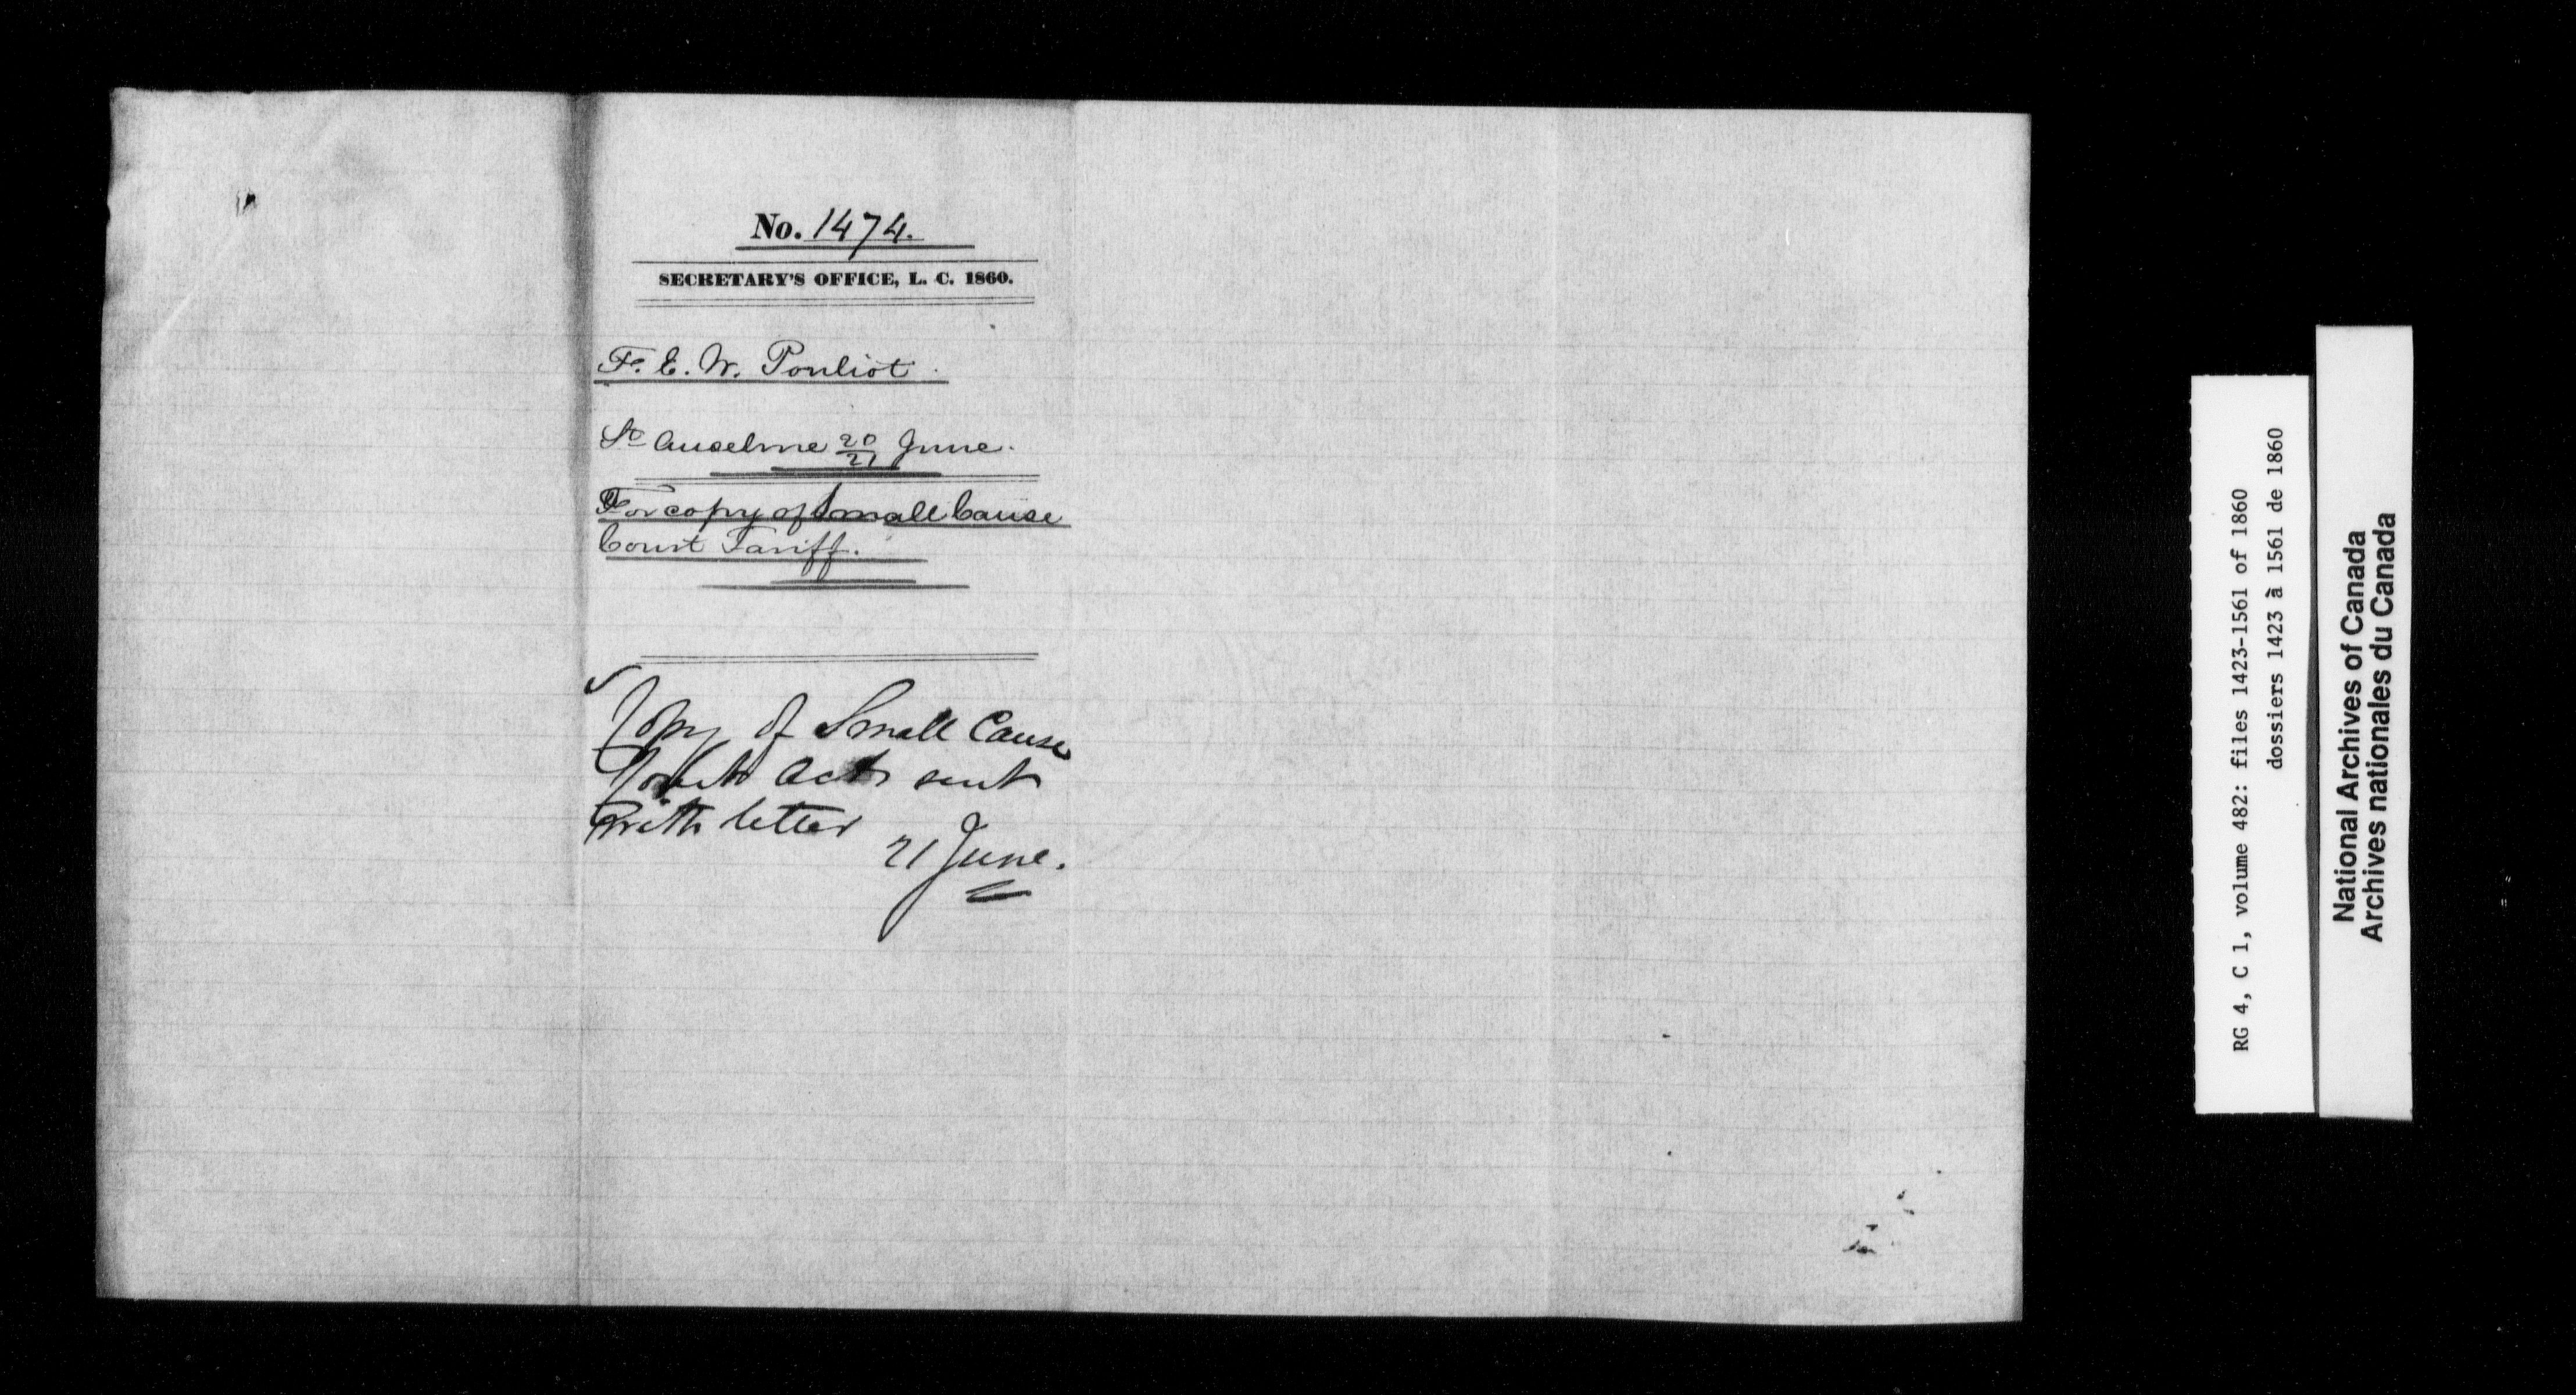 No. 1474.
SECRETARY'S OFFICE, L. C. 1860.
F. E. W. Pouliot.
St Anselme 20/21 June.
For copy of Small Cause
Court Tariff.
Copy of Small Cause
Courts Acts sent
with letter
21 June.
RG 4, C 1, volume 482: files 1423-1561 of 1860
dossiers 1423 à 1561 de 1860
National Archives of Canada
Archives nationales du Canada